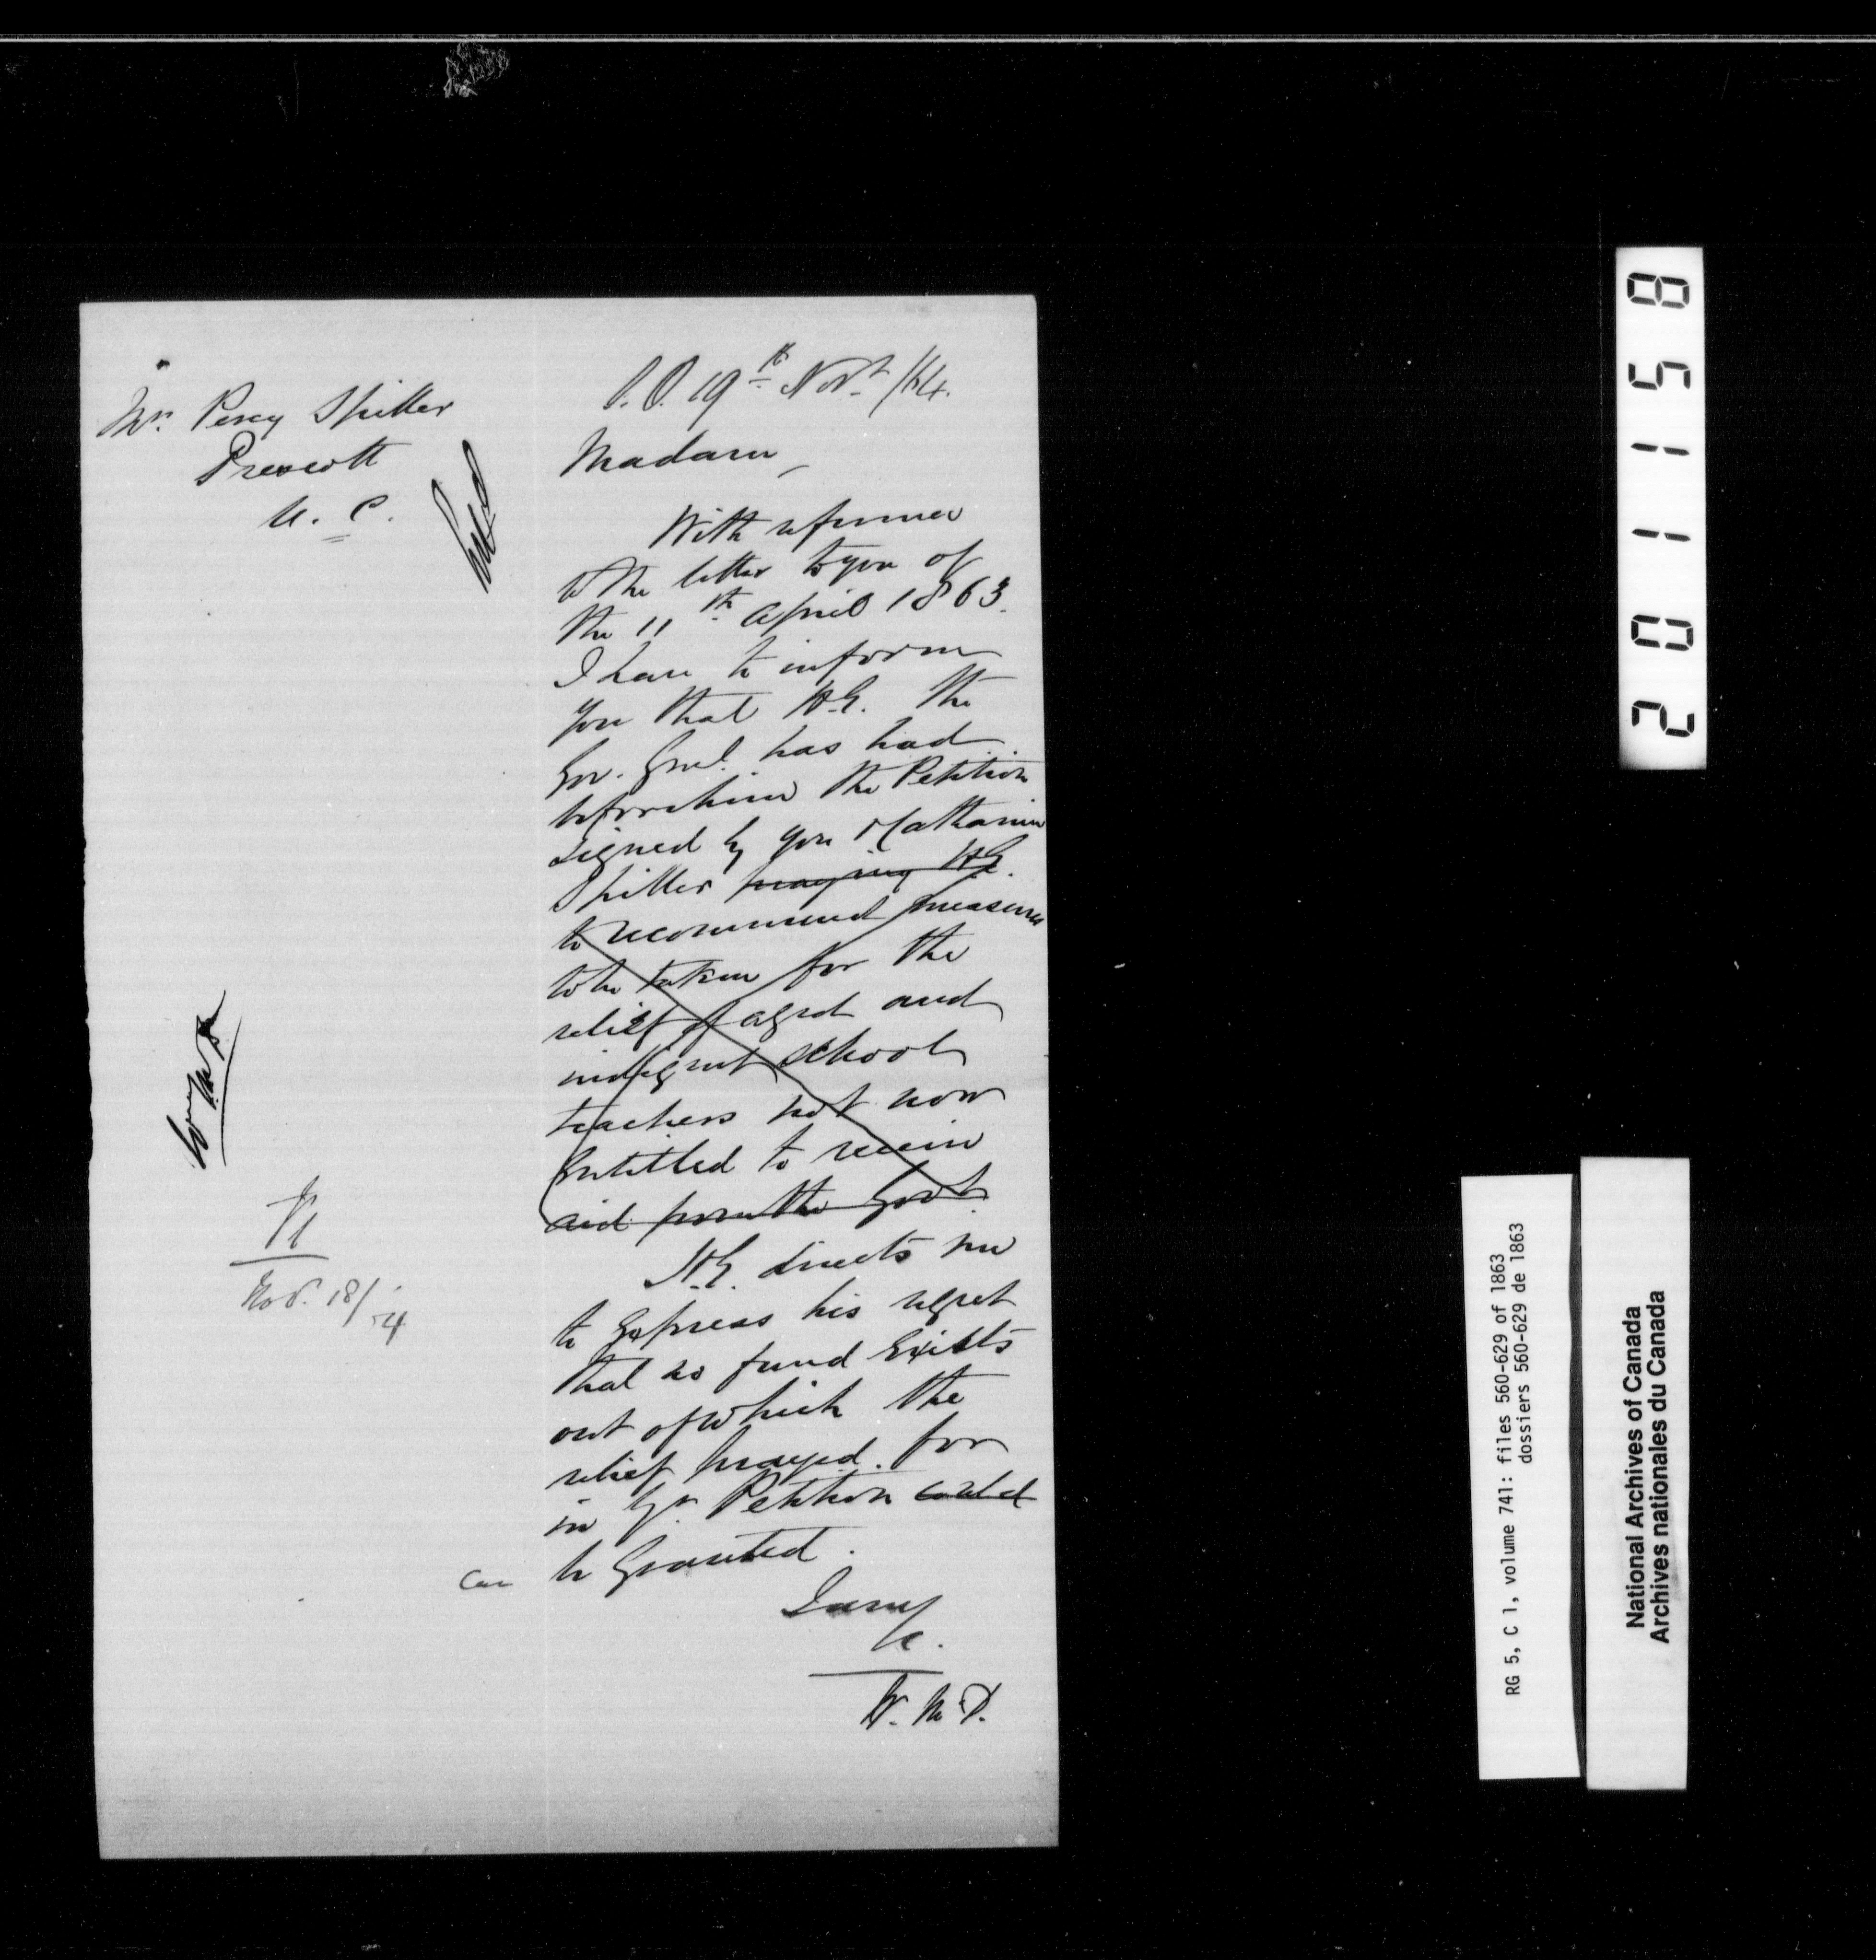 Mrs. Percy Spiller
Prescott
U. C.
S.O. 19th Novr /64.
Madam,
With reference
to the letter to you of
the 11th April 1863.
I have to inform
you that H.E. the
Gov. Genl. has had
before him the Petition
signed by you & Catharine
Spiller praying H.E.
to recommend measures
to be taken for the
relief of aged and
indigent school
teachers not now
entitled to receive
aid from the Govt.
H.E. directs me
to express his regret
that no fund exists
out of which the
relief prayed for
in yr Petition could
can be granted.
I am
&c.
W. M. D.
Nov. 18/64
201158
RG 5, C 1, volume 741: files 560-629 of 1863
dossiers 560-629 de 1863
National Archives of Canada
Archives nationales du Canada